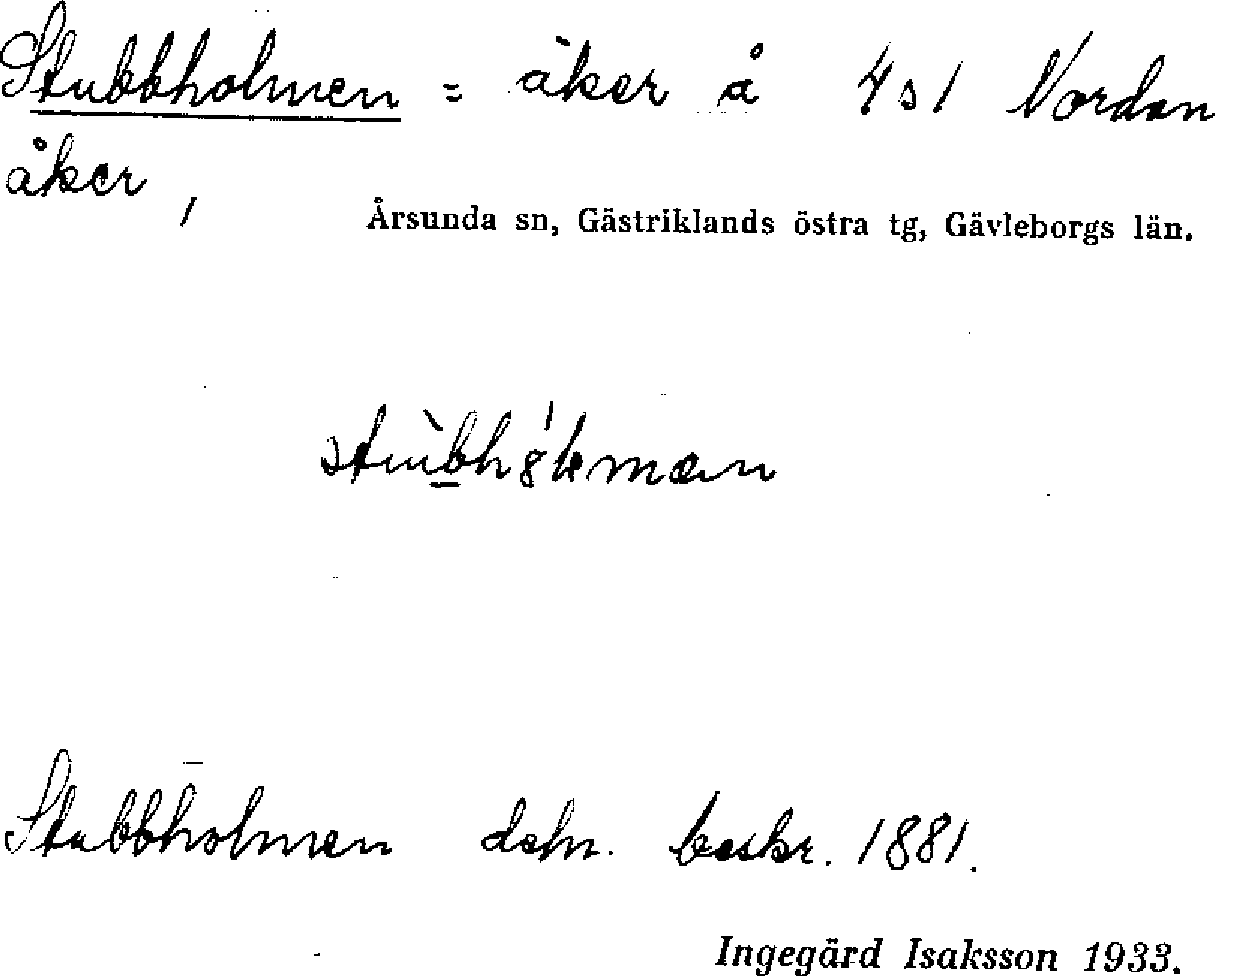 Stubbholmen = åker å 4s1 Nordan
åker,
Årsunda sn, Gästriklands östra tg, Gävleborgs län.
Stubbholmen deln. beskr. 1881.
Ingegärd Isaksson 1933.